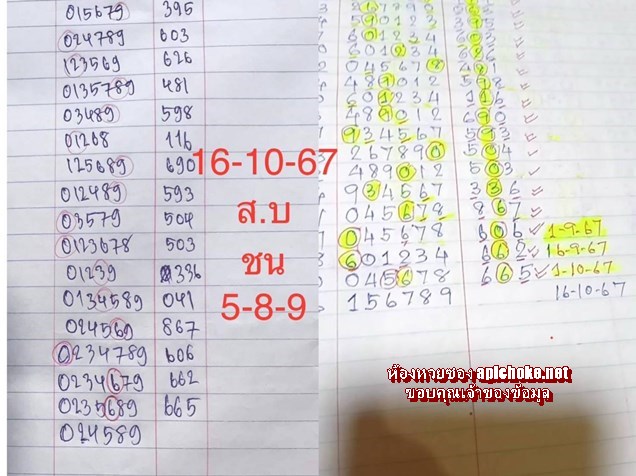 015679 395
024789 603
123569 626
0135789 481
03489 598
01268 116
125689 690
012489 593
03579 504
0123678 503
01239 336
0134589 041
024569 867
0234789 606
0234679 662
0235689 665
024589
16-10-67
ส.บ
ชน
5-8-9
601234
045678
489012
601234 116
489012 690
934567 593
267890 504
489012 503
934567 336
045678 867
045678 606 1-9-67
601234 662 16-9-67
045678 665 1-10-67
156789 16-10-67
ห้องหวยซอง apichoke.net
ขอบคุณเจ้าของข้อมูล